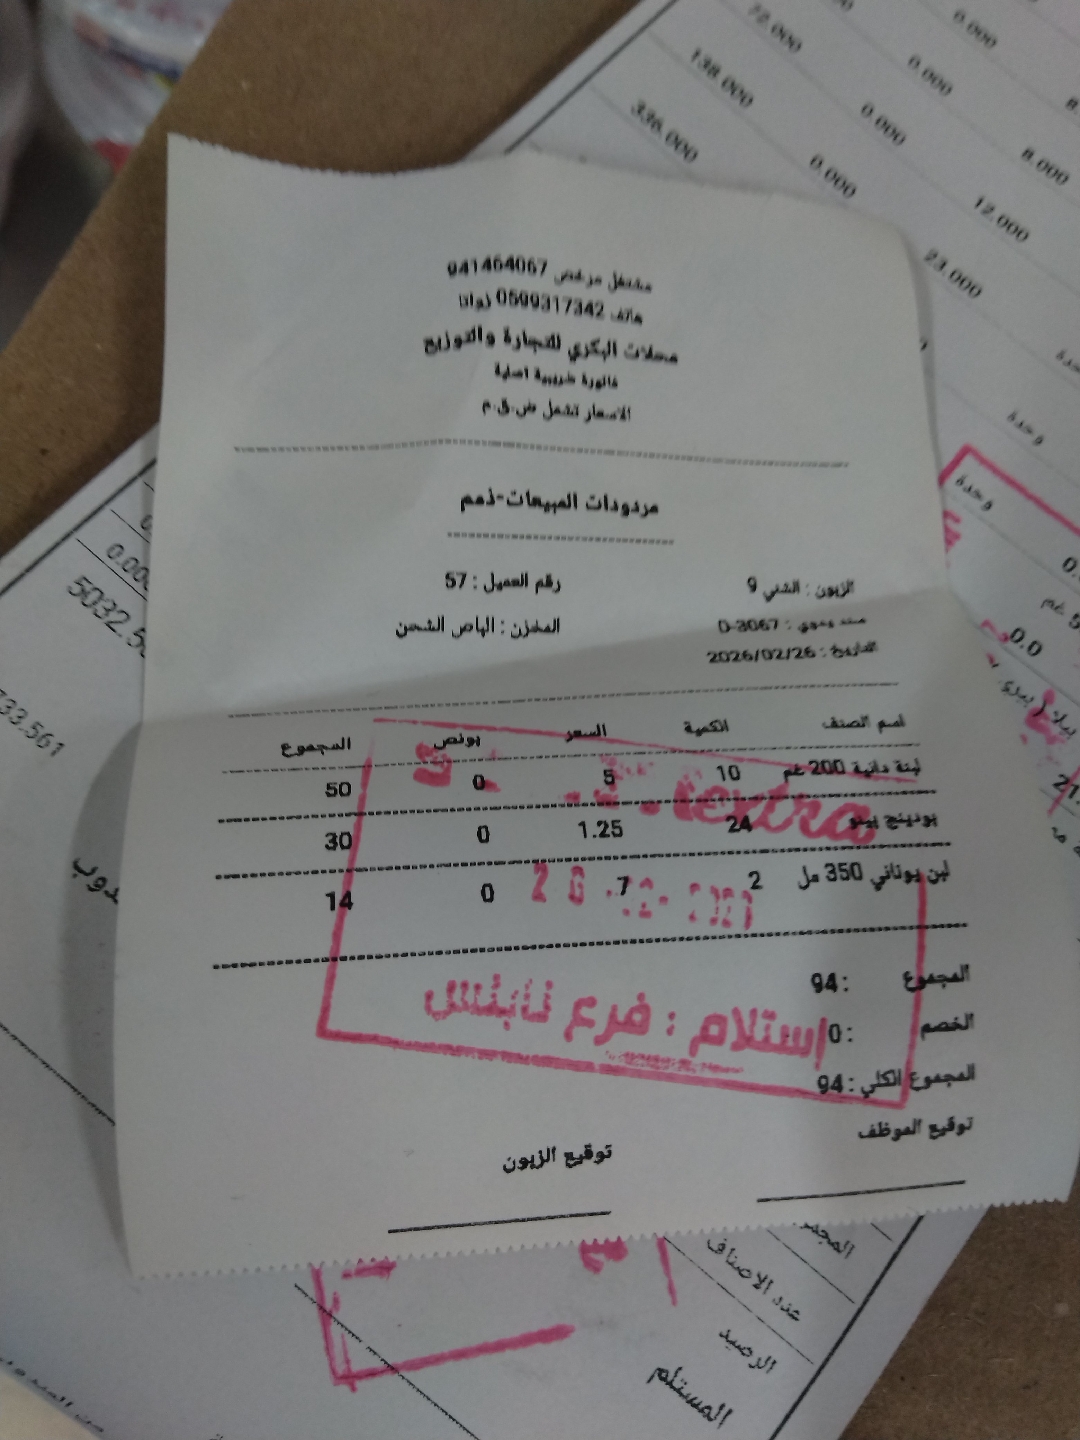 مشتغل مرخص 941464067
هاتف 0599317342 زواتا
محلات البكري للتجارة والتوزيع
فاتورة ضريبية اصلية
الاسعار تشمل ض.ق.م
مردودات المبيعات-ذمم
الزبون : الشني 9 رقم العميل : 57
سند يدوي : D-3067 المخزن : الباص الشحن
التاريخ : 2026/02/26
اسم الصنف الكمية السعر بونص المجموع
لبنة دانية 200 غم 10 5 0 50
بودينج بينو 24 1.25 0 30
لبن يوناني 350 مل 2 7 0 14
extra
استلام : فرع نابلس
المجموع : 94
الخصم : 0
المجموع الكلي : 94
توقيع الموظف
توقيع الزبون
72.000 0.000
138.000 0.000 8.000
336.000 0.000 12.000
0.000 23.000
وحدة
وحدة
0.0
733.561
عدد الاصناف
الرصيد
المستلم